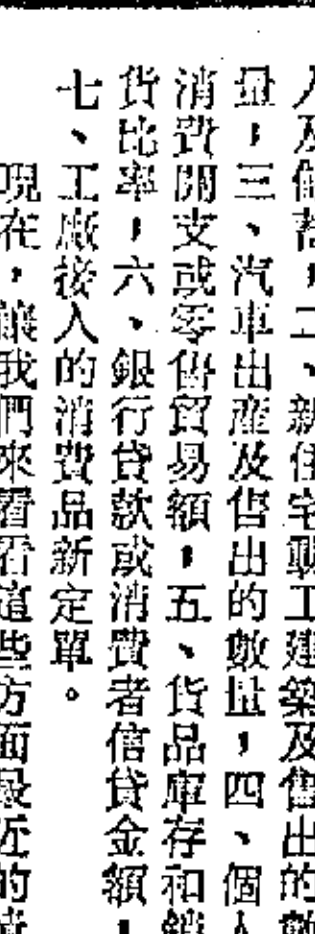 入及儲蓄，二、新住宅動工建築及售出的數
量，三、汽車出產及售出的數量，四、個人
消費開支或零售貿易額，五、貨品庫存和銷
貨比率，六、銀行貸款或消費者信貸金額，
七、工廠接入的消費品新定單。
現在，讓我們來看看這些方面最近的情